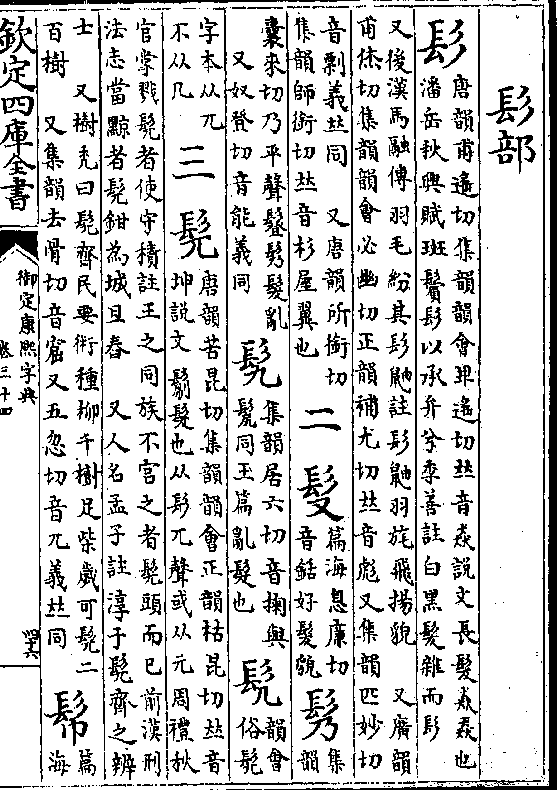 髟部
髟
唐韻甫遙切集韻韻會卑遙切𠀤音猋說文長髮猋猋也
潘岳秋興賦斑鬢髟以承弁兮李善註白黑髮雜而髟
又後漢馬融傳羽毛紛其髟鼬註髟鼬羽旄飛揚貌　又廣韻
甫烋切集韻韻會必幽切正韻補尤切𠀤音彪又集韻匹妙切
音剽義𠀤同　又唐韻所銜切
集韻師銜切𠀤音杉屋翼也
二
篇海息廉切
音銛好髮貌
集
韻
囊來切乃平聲髮亂
又奴登切音能義同
集韻居六切音掬與
同玉篇亂髮也
韻會
俗髡
字本从兀
不从几
三
髡
唐韻苦昆切集韻韻會正韻枯昆切𠀤音
坤說文鬀髮也从髟兀聲或从元周禮秋
官掌戮髡者使守積註王之同族不宮之者髡頭而已前漢刑
法志當黥者髡鉗為城旦舂　又人名孟子註淳于髡齊之辨
士　又樹禿曰髡齊民要術種柳千樹足柴歲可髡二
百樹　又集韻去骨切音窟又五忽切音兀義𠀤同
篇
海
欽定四庫全書
御定康熙字典
卷三十四